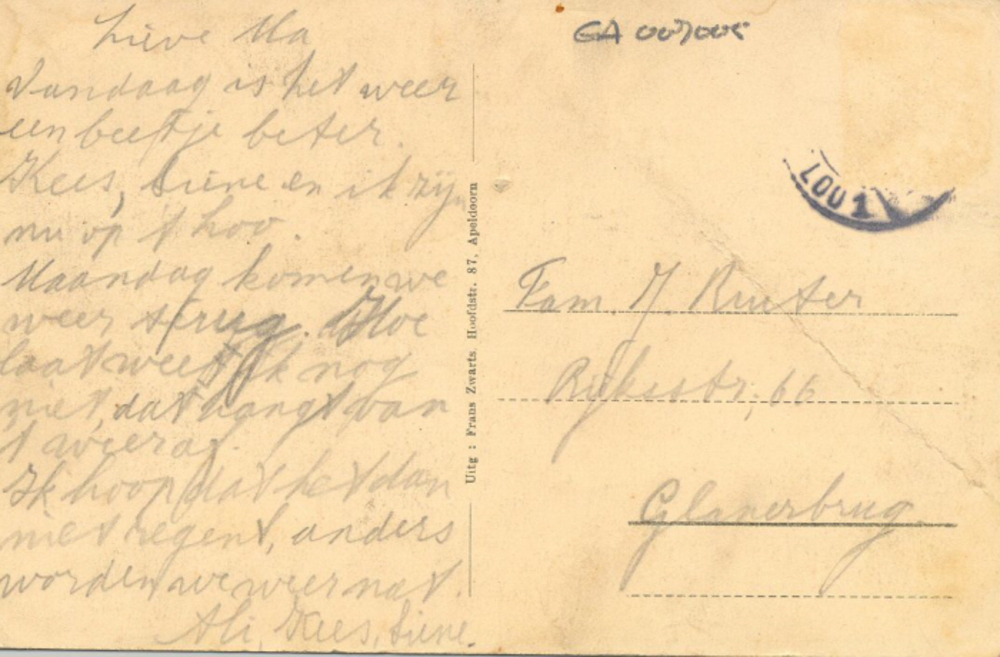 Lieve Ma
Vandaag is het weer
een beetje beter.
Kees, Siene en ik zijn
nu op 't Loo.
Maandag komen we
weer terug. Hoe
laat weet ik nog
niet, dat hangt van
't weer af.
Ik hoop dat het dan
niet regent, anders
worden we weer nat.
Ali, Kees, Siene.
Uitg : Frans Zwarts. Hoofdstr. 87, Apeldoorn
GA 007005
LOO 1
Fam. J. Ruiter
Rijksstr, 66
Glanerbrug